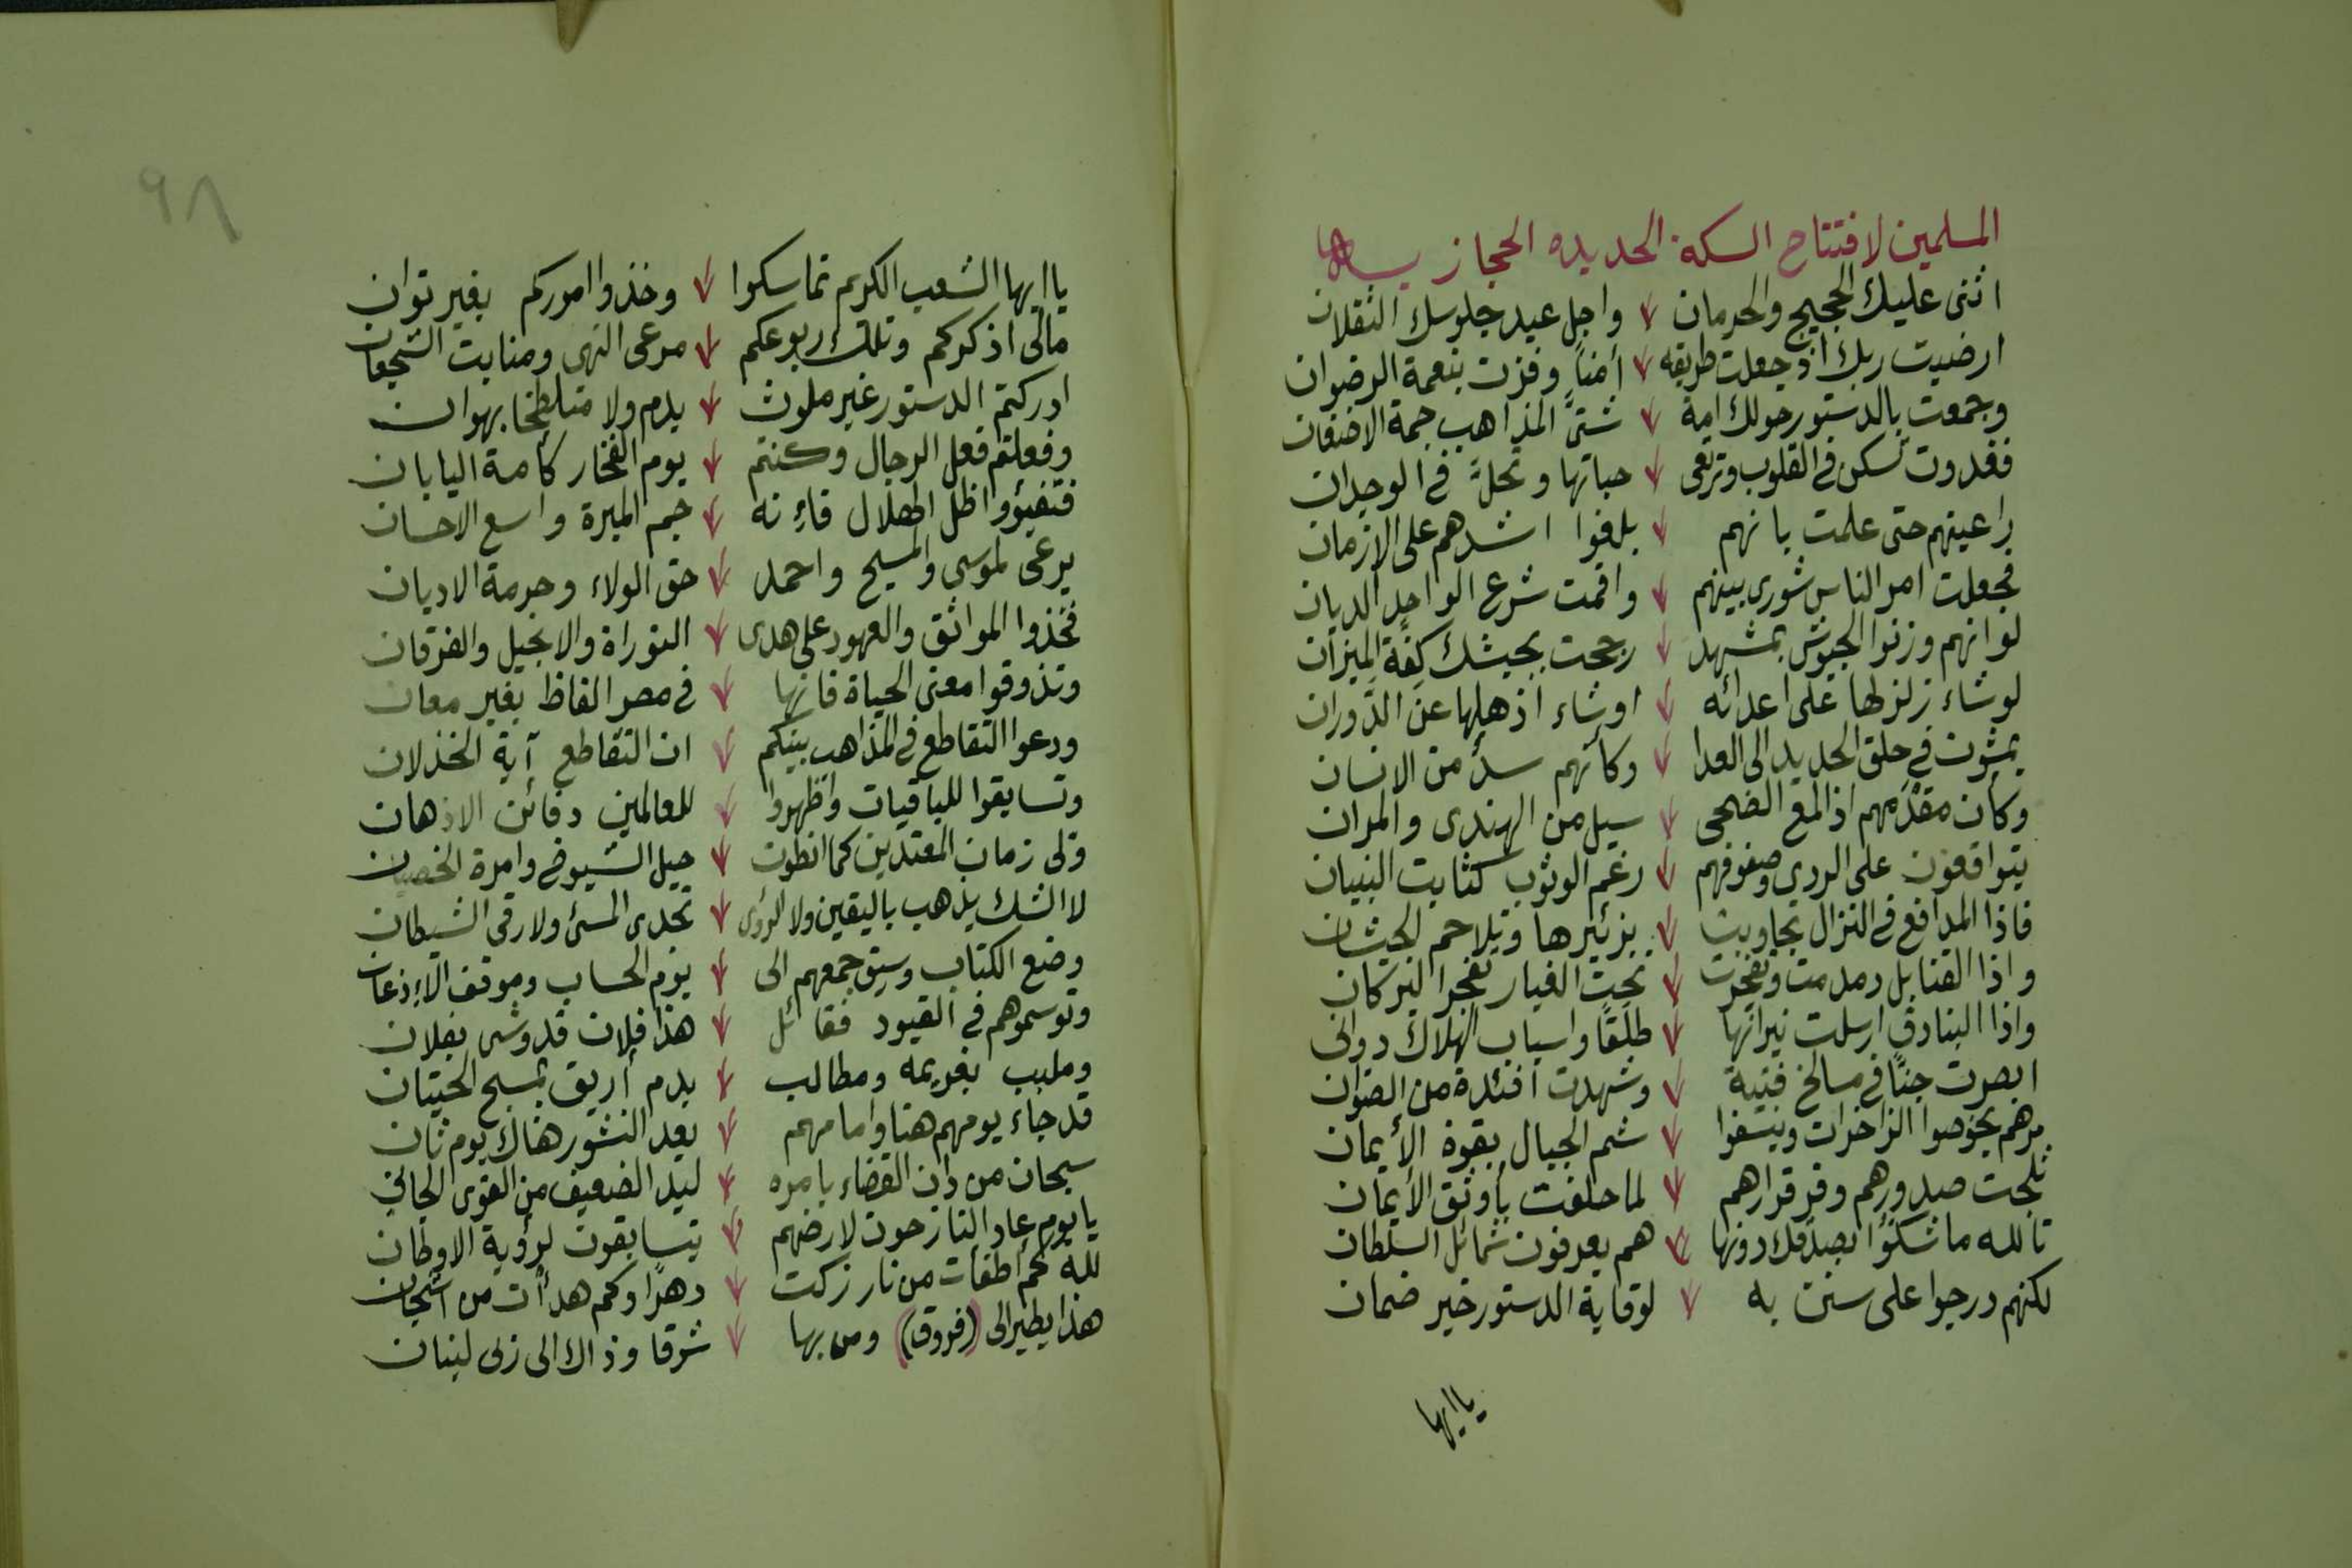 المسلمين لافتتاح السكة الحديده الحجازيه
اثنى عليك الحجيج والحرمان واجل عيد جلوسك الثقلان
ارضيت ربك اذ جعلت طريقه أمناً وفزت بنعمة الرضوان
وجمعت بالدستور حولك امة شتىَّ المذاهب جمة الاضغان
فغدوت تسكن في القلوب وترتعى حباتها وتحلّ في الوجدان
راعيتهم حتى علمت بانهم بلغوا اشدهم على الازمان
فجعلت امر الناس شورى بينهم واقمت شرع الواحد الديان
لو انهم وزنوا الجيوش بمشهد رجحت بجيشك كفة الميزان
لو شاء زلزلها على اعدائه او شاء اذهلها عن الدوران
يمشون في حلق الحديد الى العدا وكأنهم سدٌ من الانسان
وكأن مقدمهم اذا لمع الضحى سيل من الهندى والمران
يتواقعون على الردى وصفوفهم رغم الوثوب كثابت البنيان
فاذا المدافع في النزال تجاوبت بزئيرها وتلاحم الجيشان
واذا القنابل دمدمت وتفجرت تحت الغبار تفجر البركان
واذا البنادق ارسلت نيرانها طلقًا واسباب الهلاك دوانى
ابصرت جنًّا في مسالخ فتية وشهدت افئدة من الصوان
مرهم يخوضوا الزاخرات وينسفوا شم الجبال بقوة الأيمان
ثلجت صدورهم وقر قرارهم لما حلفت بأوثق الأيمان
تالله ما شكوا بصدقك دونها هم يعرفون شمائل السلطان
لكنهم درجوا على سنن به لوقاية الدستور خير ضمان
ياايها
٩٨
ياايها الشعب الكريم تماسكوا وخذوا اموركم بغير توان
مالى اذكركم وتلك ربوعكم مرعى النهى ومنابت الشجعان
ادركتم الدستور غير ملوث بدم ولا متلطخا بهوان
وفعلتم فعل الرجال وكنتم يوم الفخار كأمة اليابان
فتفيؤوا ظل الهلال فإنه جم المبرة واسع الاحسان
يرعى لموسى والمسيح واحمد حق الولاء وحرمة الاديان
فخذوا المواثق والعهود على هدى التوراة والانجيل والفرقان
وتذوقوا معنى الحياة فانها في مصر الفاظ بغير معان
ودعوا التقاطع في المذاهب بينكم ان التقاطع آية الخذلان
وتسابقوا للباقيات واظهروا للعالمين دفائن الاذهان
ولى زمان المعتدين كما انطوت حيل الشيوخ وامرة الخصيان
لا الشك يذهب باليقين ولا الرؤى تجدى المسئ ولا رقى الشيطان
وضع الكتاب وسيق جمعهم الى يوم الحساب وموقف الإذعان
وتوسموهم في القيود فقائل هذا فلان قد وشى بفلان
وملبب بغريمه ومطالب بدم أريق بمسبح الحيتان
قد جاء يومهم هنا وامامهم بعد النشور هناك يوم ثان
سبحان من دان القضاء بامره ليد الضعيف من القوى الجاني
يا يوم عاد النازحون لارضهم يتسابقون لرؤية الاوطان
لله كم اطفأت من نار زكت دهرًا وكم هدأت من اشجان
هذا يطير الى (فروق) ومن بها شوقا وذاك الى ربى لبنان